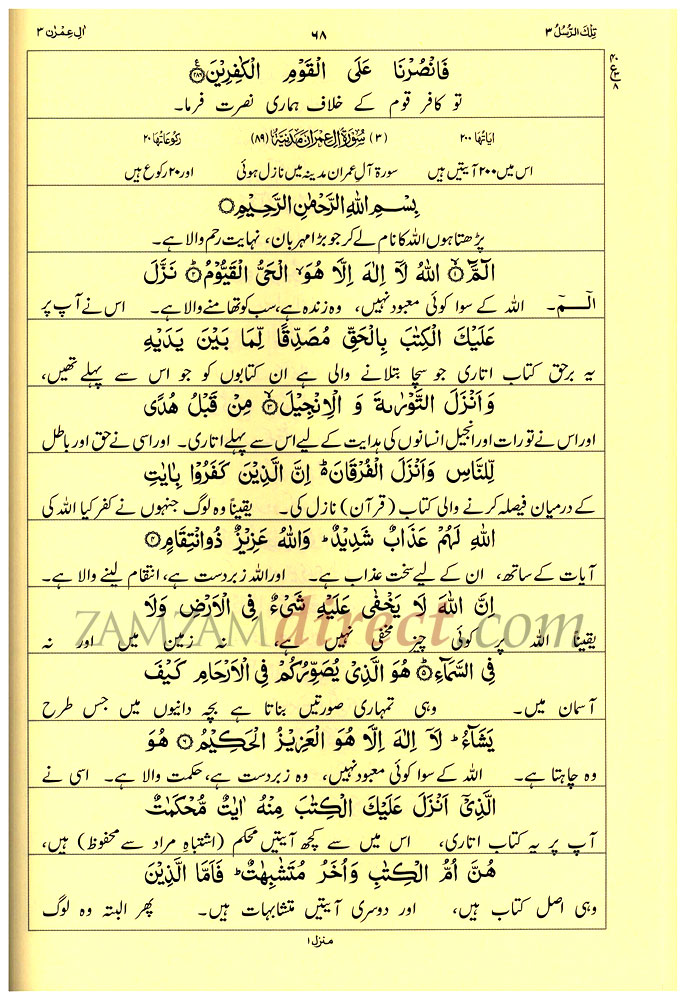 تِلْكَ الرُّسُلُ ٣ ٦٨ اٰلِ عِمْرٰن ٣
فَانْصُرْنَا عَلَى الْقَوْمِ الْكٰفِرِيْنَ ﴿٢٨٦﴾
تو کافر قوم کے خلاف ہماری نصرت فرما۔
اٰيَاتُهَا ٢٠٠ (٣) سُوْرَةُ اٰلِ عِمْرٰنَ مَدَنِيَّةٌ (٨٩) رُكُوْعَاتُهَا ٢٠
اس میں ۲۰۰ آیتیں ہیں سورۃ آلِ عمران مدینہ میں نازل ہوئی اور ۲۰ رکوع ہیں
بِسْمِ اللهِ الرَّحْمٰنِ الرَّحِيْمِ
پڑھتا ہوں اللہ کا نام لے کر جو بڑا مہربان، نہایت رحم والا ہے۔
الٓمَّٓ ﴿١﴾ اللهُ لَآ اِلٰهَ اِلَّا هُوَ ۙ الْحَىُّ الْقَيُّوْمُ ﴿٢﴾ نَزَّلَ
الٓـــمٓ۔ اللہ کے سوا کوئی معبود نہیں، وہ زندہ ہے، سب کو تھامنے والا ہے۔ اس نے آپ پر
عَلَيْكَ الْكِتٰبَ بِالْحَقِّ مُصَدِّقًا لِّمَا بَيْنَ يَدَيْهِ
یہ برحق کتاب اتاری جو سچا بتلانے والی ہے ان کتابوں کو جو اس سے پہلے تھیں،
وَاَنْزَلَ التَّوْرٰىةَ وَ الْاِنْجِيْلَ ﴿٣﴾ مِنْ قَبْلُ هُدًى
اور اس نے تورات اور انجیل انسانوں کی ہدایت کے لیے اس سے پہلے اتاری۔ اور اسی نے حق اور باطل
لِّلنَّاسِ وَاَنْزَلَ الْفُرْقَانَ ؕ اِنَّ الَّذِيْنَ كَفَرُوْا بِاٰيٰتِ
کے درمیان فیصلہ کرنے والی کتاب (قرآن) نازل کی۔ یقیناً وہ لوگ جنہوں نے کفر کیا اللہ کی
اللهِ لَهُمْ عَذَابٌ شَدِيْدٌ ؕ وَاللهُ عَزِيْزٌ ذُوانْتِقَامٍ ﴿٤﴾
آیات کے ساتھ، ان کے لیے سخت عذاب ہے۔ اور اللہ زبردست ہے، انتقام لینے والا ہے۔
اِنَّ اللهَ لَا يَخْفٰى عَلَيْهِ شَىْءٌ فِى الْاَرْضِ وَلَا
یقیناً اللہ پر کوئی چیز مخفی نہیں ہے، نہ زمین میں اور نہ
ZAMZAMdirect.com
فِى السَّمَآءِ ﴿٥﴾ هُوَ الَّذِىْ يُصَوِّرُكُمْ فِى الْاَرْحَامِ كَيْفَ
آسمان میں۔ وہی تمہاری صورتیں بناتا ہے بچہ دانیوں میں جس طرح
يَشَآءُ ؕ لَآ اِلٰهَ اِلَّا هُوَ الْعَزِيْزُ الْحَكِيْمُ ﴿٦﴾ هُوَ
وہ چاہتا ہے۔ اللہ کے سوا کوئی معبود نہیں، وہ زبردست ہے، حکمت والا ہے۔ اسی نے
الَّذِىْٓ اَنْزَلَ عَلَيْكَ الْكِتٰبَ مِنْهُ اٰيٰتٌ مُّحْكَمٰتٌ
آپ پر یہ کتاب اتاری، اس میں سے کچھ آیتیں محکم (اشتباہِ مراد سے محفوظ) ہیں،
هُنَّ اُمُّ الْكِتٰبِ وَاُخَرُ مُتَشٰبِهٰتٌ ؕ فَاَمَّا الَّذِيْنَ
وہی اصل کتاب ہیں، اور دوسری آیتیں متشابہات ہیں۔ پھر البتہ وہ لوگ
منزل ۱